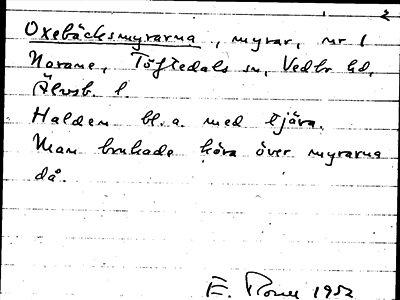 Oxebäcksmyrarna, myrar, nr 1
Norane, Töftedals sn, Vedbo hd,
Älvsb. l.
Halden bl. a. med tjära.
Man brukade köra över myrarna
då.
E. 1952